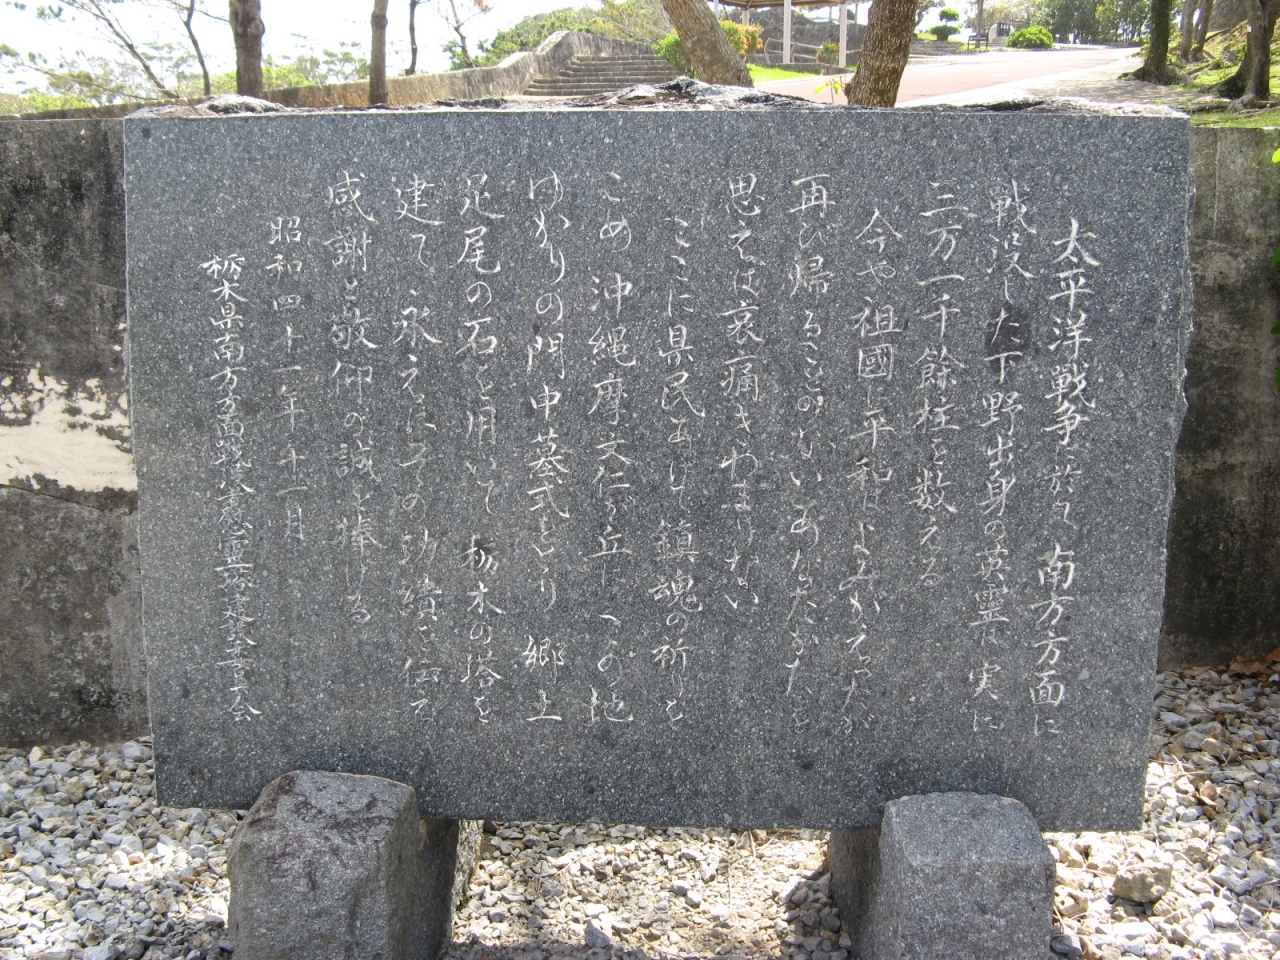 太平洋戦争に於て 南方方面に
戦没した下野出身の英霊は 実に
三万一千餘柱を数える
今や祖國し平和によみがえったが
再び帰ることのないあなたがたを
思えば哀痛きわまりない
ここに県民あげて鎮魂の祈りを
こめ 沖縄摩文仁が丘に この地
ゆかりの門中墓式をとり 郷土
足尾の石を用いて 栃木の塔を
建て 永えにその功績を伝え
感謝と敬仰の誠を捧げる
昭和四十一年十一月
栃木県南方方面戦没者慰霊塔建設委員会